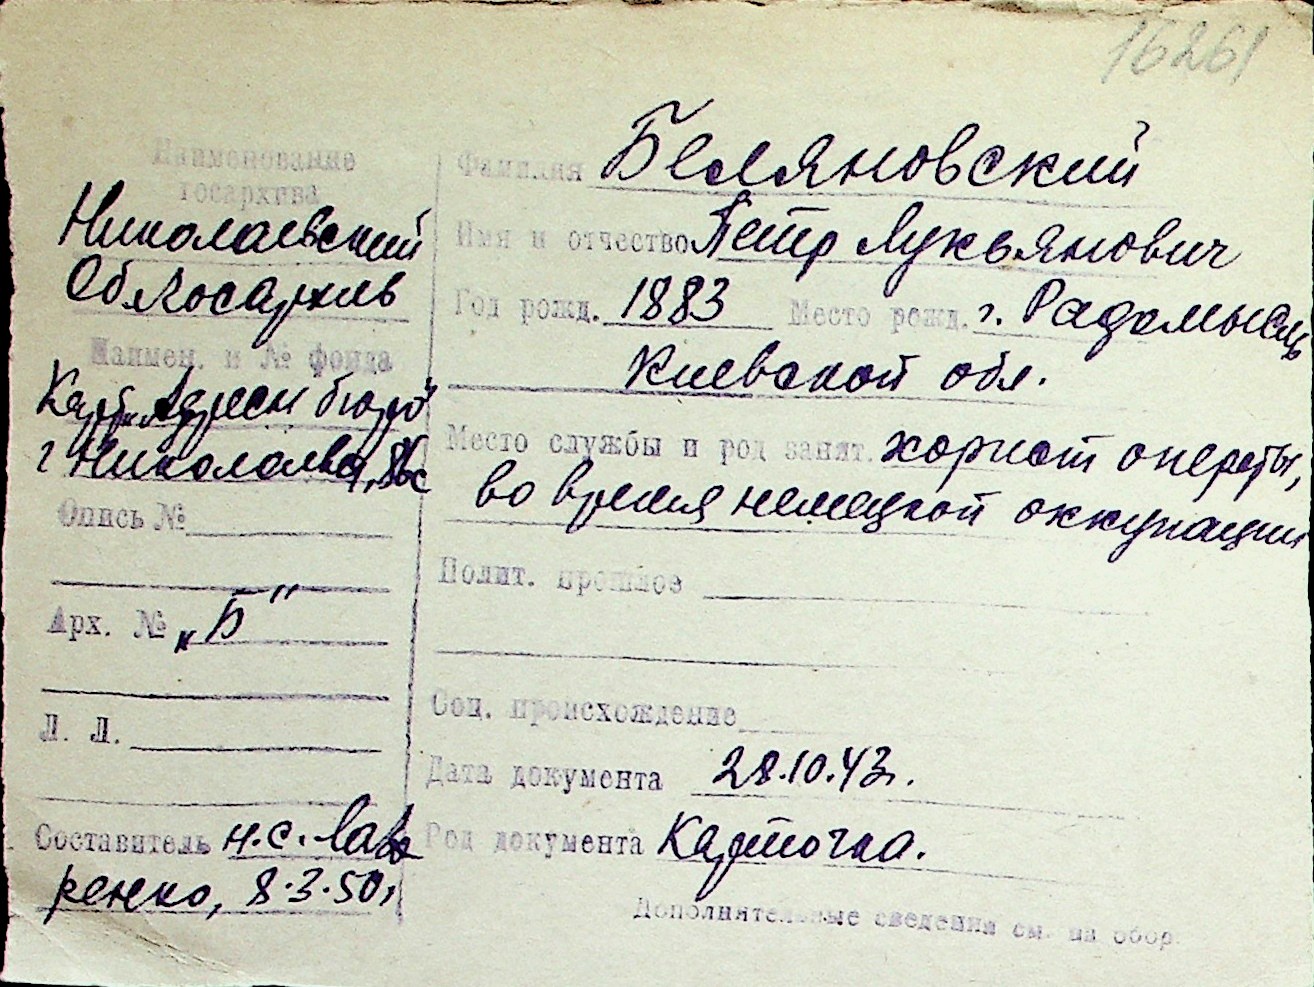 16261
Наименование
госархива
Николаевский
Облгосархив
Наимен. и № фонда
Карт. „Адресн бюро"
г Николаева,
Опись №
Арх. № „Б"
Л. Л.
Составитель н.с. Лав
ренко, 8.3.50г
Фамилия Беляновский
Имя и отчество Петр Лукьянович
Год рожд. 1883 Место рожд. г. Радомысль
Киевской обл.
Место службы и род занят. хорист опереты,
во время немецкой оккупации
Полит. прошлое
Соц. происхождение
Дата документа 28.10.43.
Род документа Карточка.
Дополнительные сведения см. на обор.